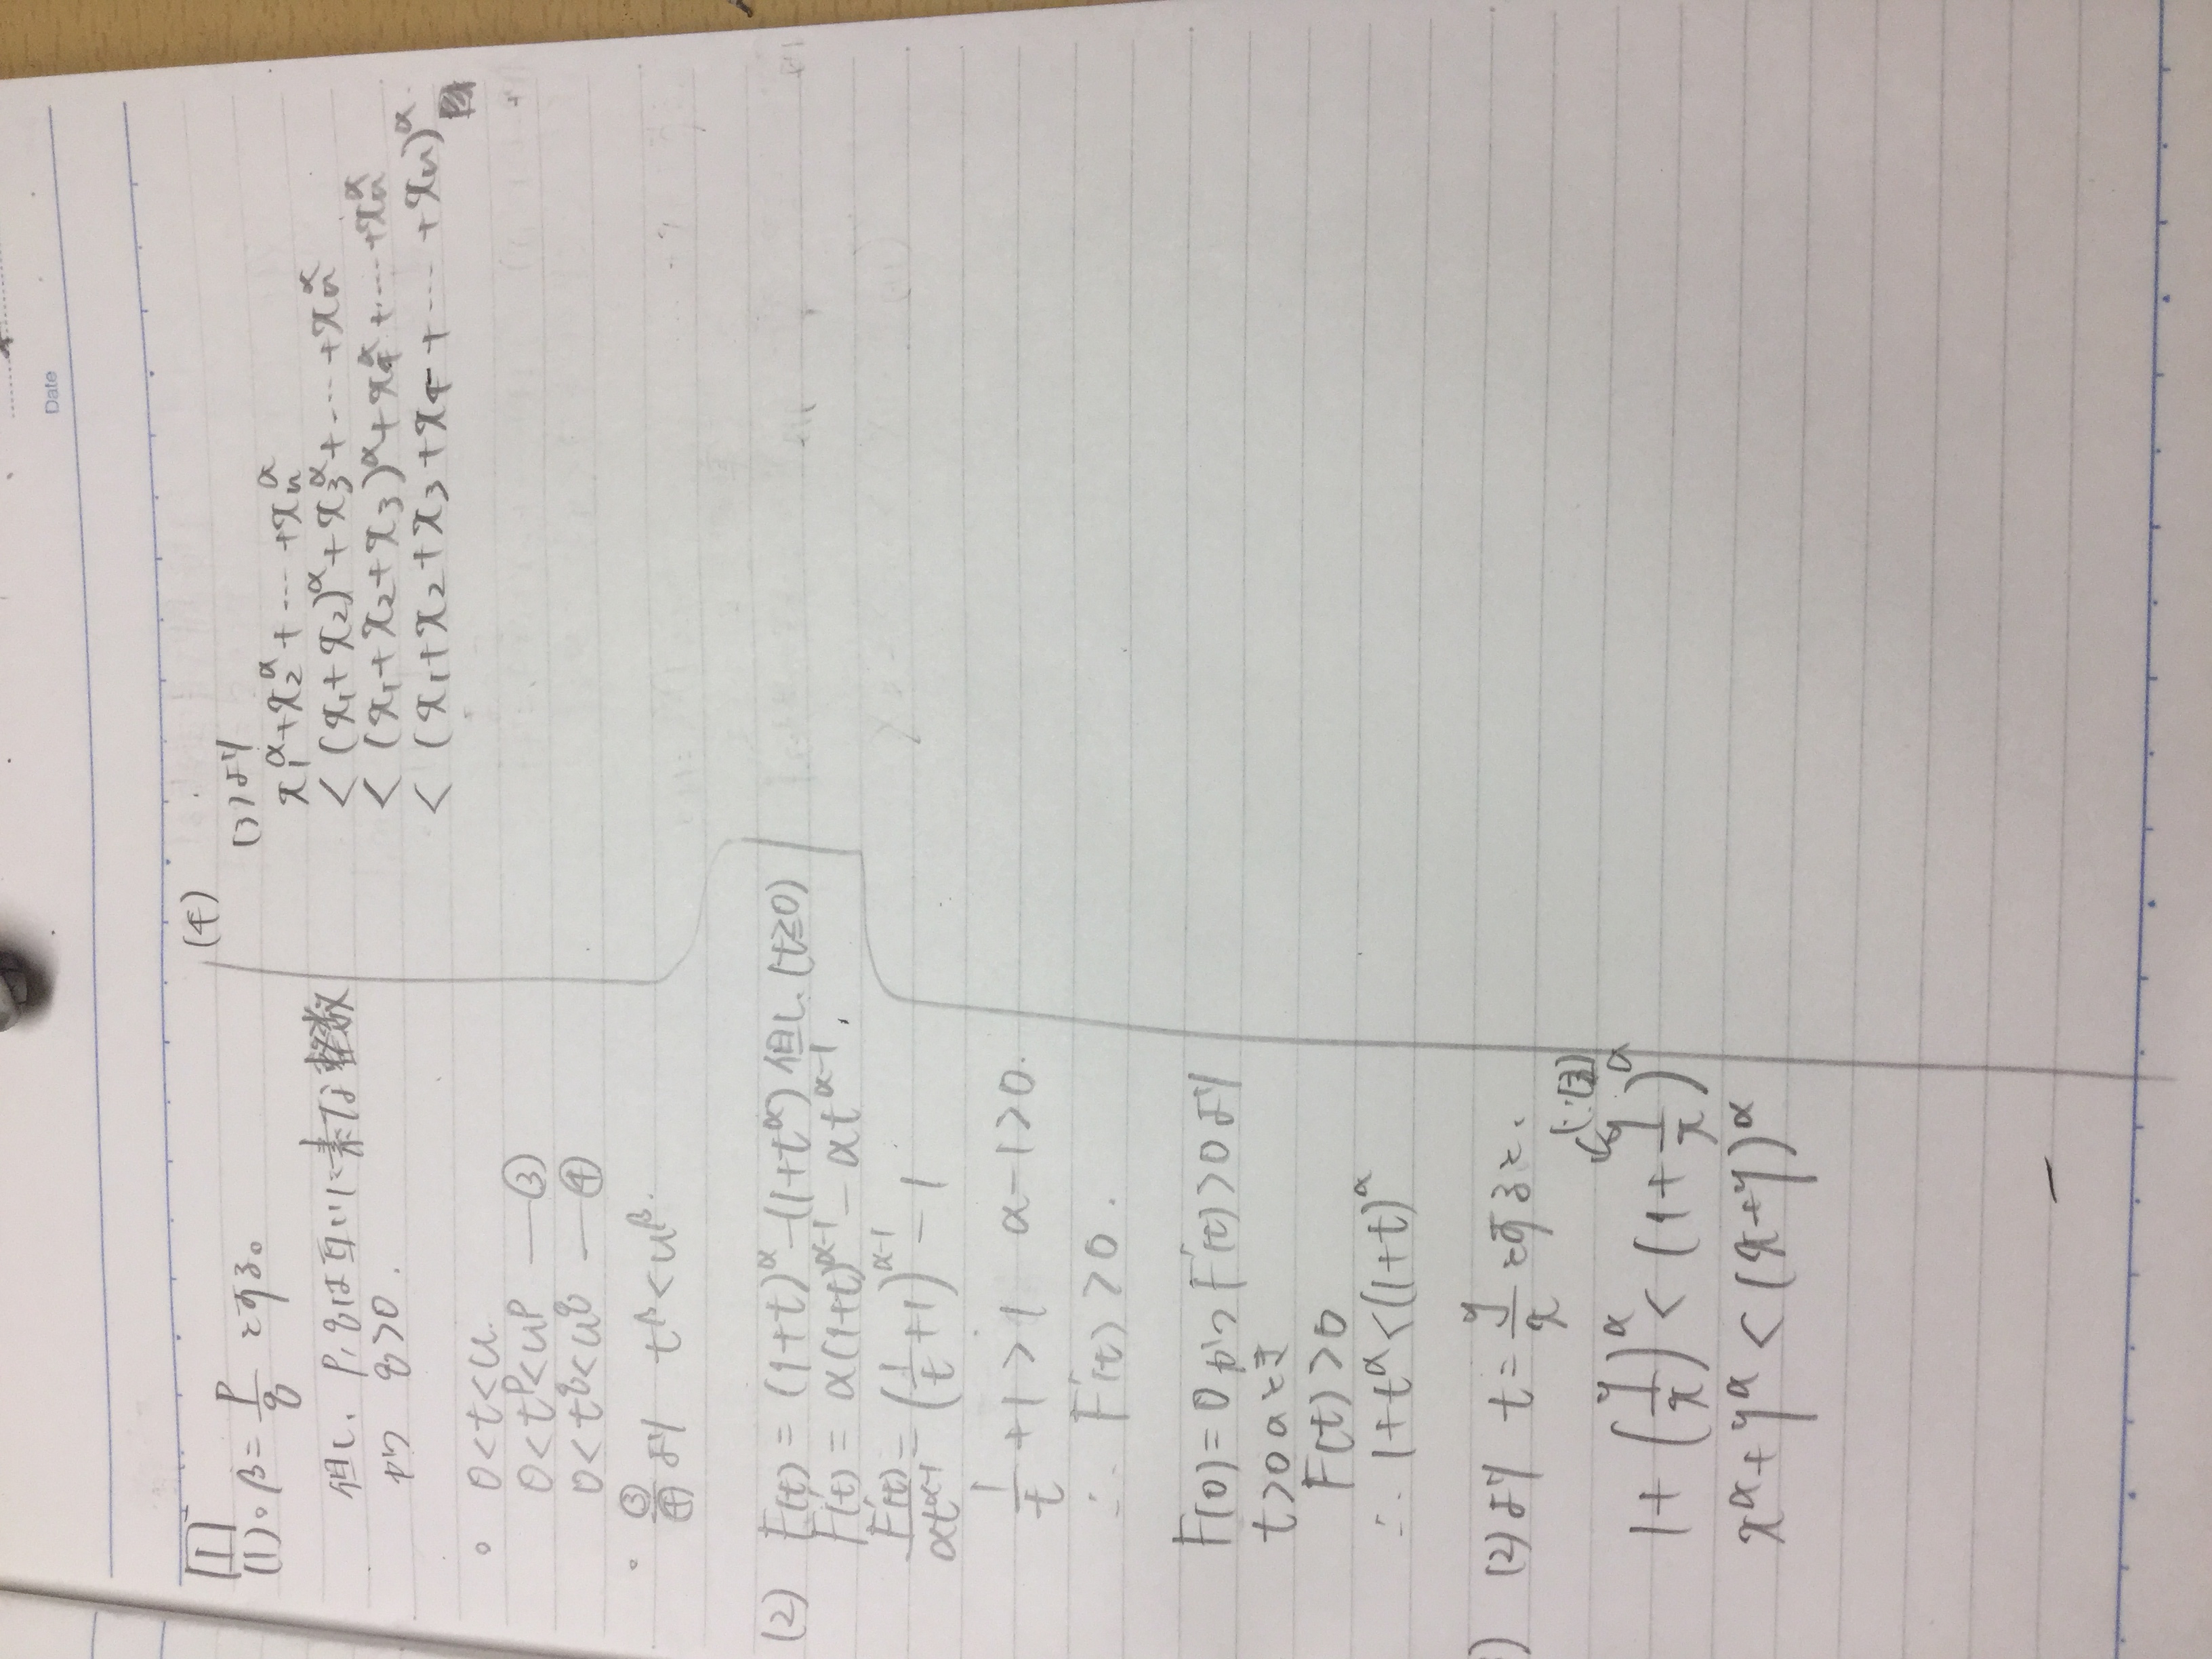 Date
[1]
(1)。β = p/q とする。
但し、p, qは互いに素な整数
かつ q>0.
。 0<t<u.
0<t^p<u^p —③
0<t^q<u^q —④
。 ③/④ より t^β<u^β.
(2) F(t) = (1+t)^α-(1+t^α) 但し、(t≧0)
F'(t) = α(1+t)^{α-1} - αt^{α-1},
F'(t)/αt^{α-1} = (1/t+1)^{α-1} - 1
1/t + 1 > 1 α-1>0.
∴ F'(t) > 0.
F(0)=0 かつ F'(t)>0より
t>0のとき
F(t)>0
∴ 1+t^α<(1+t)^α
) (2)より t = y/x とすると、
1+(y/x)^α < (1+y/x)^α
x^α+y^α < (x+y)^α
(4)
(3)より
x_1^α+x_2^α+ … +x_n^α
< (x_1+x_2)^α+x_3^α+ … +x_n^α
< (x_1+x_2+x_3)^α+x_4^α+ … +x_n^α
< (x_1+x_2+x_3+x_4+ … +x_n)^α.